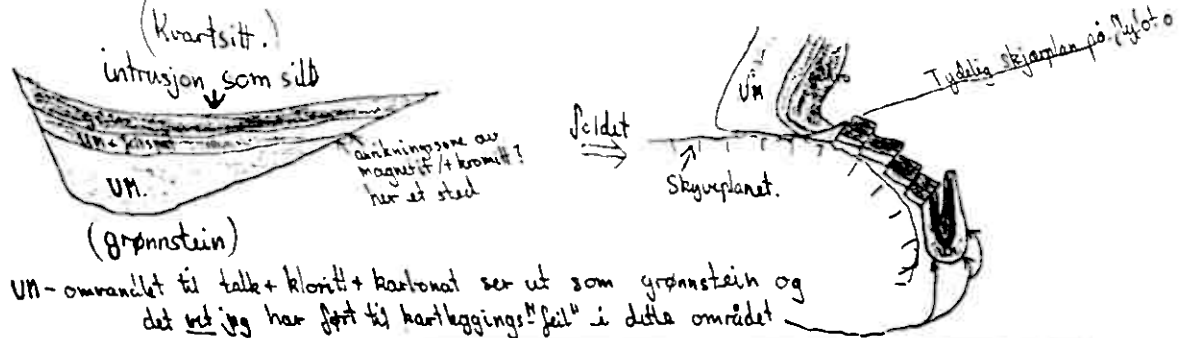 (Kvartsitt.)
intrusjon som sill
UM + felsisk
UM.
anrikningssone av
magnetitt/+kromitt?
her et sted
(grønnstein)
foldet
UM
Skyveplanet.
Tydelig skjærplan på
UM-omvandlet til talk + kloritt + karbonat ser ut som grønnstein og
det vet jeg har ført til kartleggings-"feil" i dette området